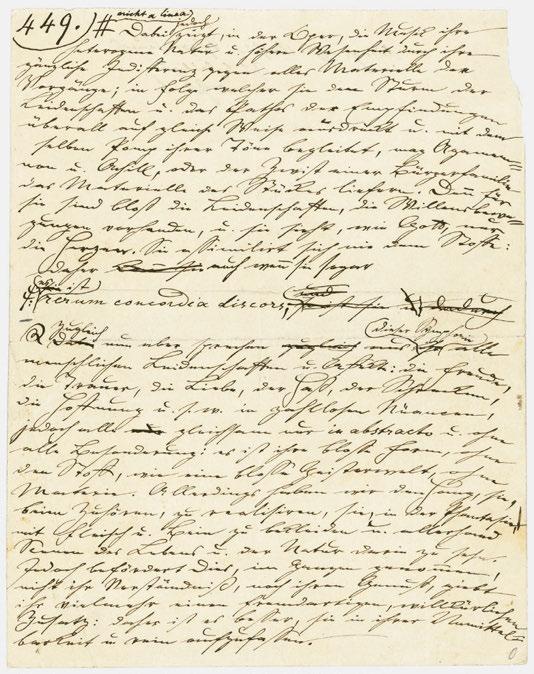 449.) # nicht a linea
Dabei zeigt jedoch, in der Oper, die Musik ihre
heterogene Natur u. höhere Wesenheit durch ihre
gänzliche Indifferenz gegen alles Materielle der
Vorgänge; in Folge welcher sie den Sturm der
Leidenschaften u. das Pathos der Empfindungen
überall auf gleiche Weise ausdrückt u. mit dem
selben Pomp ihrer Töne begleitet, mag Agamem-
non u. Achill, oder der Zwist einer Bürgerfamilie,
das Materielle des Stückes liefern. Denn für
sie sind bloß die Leidenschaften, die Willensbewe-
gungen vorhanden, u. sie sieht, wie Gott, nur
die Herzen. Sie assimilirt sich nie dem Stoffe:
daher auch wenn sie sogar
ist
rerum concordia discors,
und
Zugleich
nun aber sprechen aus dieser Symphonie alle
menschlichen Leidenschaften u. Affekte: die Freude,
die Trauer, die Liebe, der Haß, der Schrecken,
die Hoffnung u. s. w. in zahllosen Nüancen,
jedoch alle gleichsam nur in abstracto u. ohne
alle Besonderung: es ist ihre bloße Form, ohne
den Stoff, wie eine bloße Geisterwelt, ohne
Materie. Allerdings haben wir den Hang, sie,
beim Zuhören, zu realisiren, sie, in der Phantasie,
mit Fleisch u. Bein zu bekleiden u. allerhand
Scenen des Lebens u. der Natur darin zu sehn.
Jedoch befördert Dies, im Ganzen genommen,
nicht ihr Verständniß, noch ihren Genuß, giebt
ihr vielmehr einen fremdartigen, willkürlichen
Zusatz: daher ist es besser, sie in ihrer Unmittel-
barkeit u. rein aufzufassen.